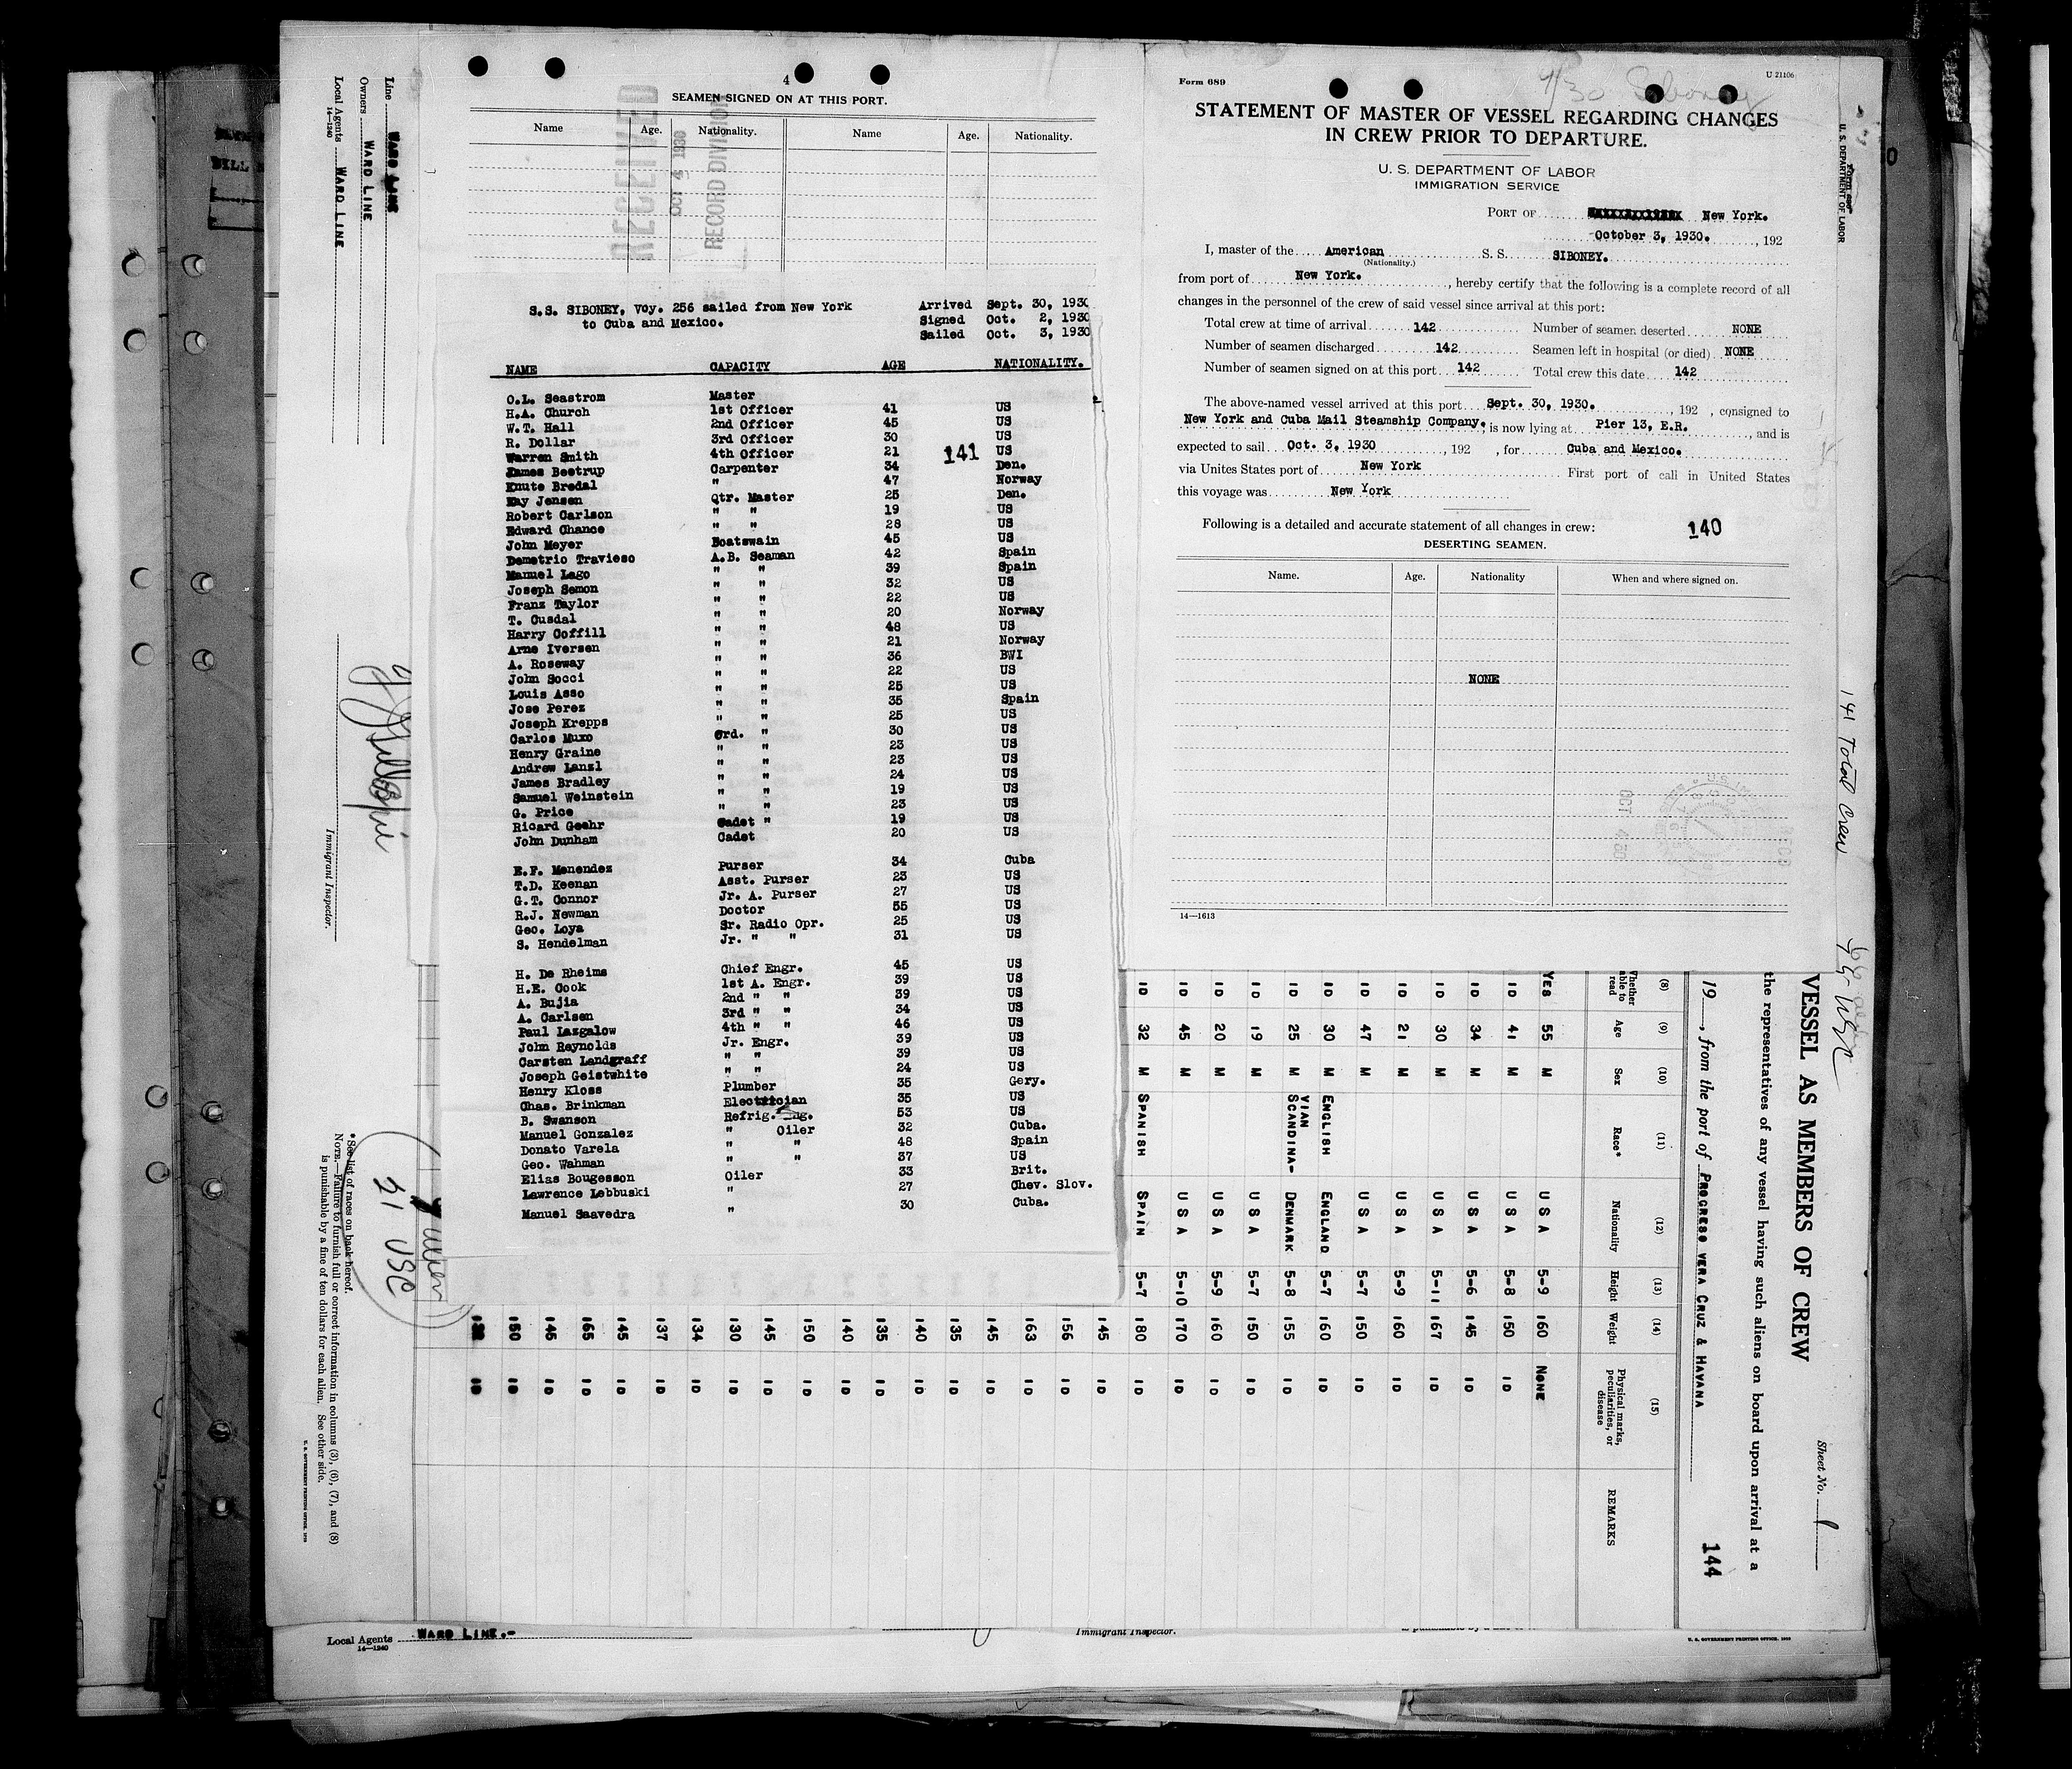 4
SEAMEN SIGNED ON AT THIS PORT.
Name Age. Nationality. Name Age. Nationality.
RECEIVED
OCT 4 1930
RECORD DIVISION
S.S. SIBONEY, Voy. 256 sailed from New York
to Cuba and Mexico.
Arrived Sept. 30, 1930
Signed Oct. 2, 1930
Sailed Oct. 3, 1930
NAME CAPACITY AGE NATIONALITY.
O.L. Seastrom Master
H.A. Church 1st Officer 41 US
W.T. Hall 2nd Officer 45 US
R. Dollar 3rd Officer 30 US
Warren Smith 4th Officer 21 US
141
James Beetrup Carpenter 34 Den.
Knute Bredal " 47 Norway
Kay Jensen Qtr. Master 25 Den.
Robert Carlson " " 19 US
Edward Chance " " 28 US
John Meyer Boatswain 45 US
Demetrio Travieso A.B. Seaman 42 Spain
Manuel Lago " " 39 Spain
Joseph Semon " " 32 US
Franz Taylor " " 22 US
T. Cusdal " " 20 Norway
Harry Coffill " " 48 US
Arne Iversen " " 21 Norway
A. Roseway " " 36 BWI
John Socci " " 22 US
Louis Asso " " 25 US
Jose Perez " " 35 Spain
Joseph Krepps " " 25 US
Carlos Muxo Ord. " 30 US
Henry Graine " " 23 US
Andrew Lanzl " " 23 US
James Bradley " " 24 US
Samuel Weinstein " " 19 US
G. Price " " 23 US
Ricard Goehr Cadet " 19 US
John Dunham Cadet 20 US
E.F. Menendez Purser 34 Cuba
T.D. Keenan Asst. Purser 23 US
G.T. Connor Jr. A. Purser 27 US
R.J. Newman Doctor 55 US
Geo. Loya Sr. Radio Opr. 25 US
S. Hendelman Jr. " " 31 US
H. De Rheims Chief Engr. 45 US
H.E. Cook 1st A. Engr. 39 US
A. Bujia 2nd " " 39 US
A. Carlsen 3rd " " 34 US
Paul Lazgalow 4th " " 46 US
John Reynolds Jr. Engr. 39 US
Carsten Landgraff " " 39 US
Joseph Geistwhite " " 24 US
Henry Kloss Plumber 35 Gery.
Chas. Brinkman Electrician 35 US
B. Swanson Refrig. Eng. 53 US
Manuel Gonzalez " Oiler 32 Cuba.
Donato Varela " " 48 Spain
Geo. Wahman " " 37 US
Elias Bougesson Oiler 33 Brit.
Lawrence Lebbuski " 27 Chev. Slov.
Manuel Saavedra " 30 Cuba.
Form 689
U 21106
9/30 Siboney
STATEMENT OF MASTER OF VESSEL REGARDING CHANGES
IN CREW PRIOR TO DEPARTURE.
U. S. DEPARTMENT OF LABOR
IMMIGRATION SERVICE
PORT OF New York.
October 3, 1930. , 192
I, master of the American S. S. SIBONEY.
(Nationality.)
from port of New York. , hereby certify that the following is a complete record of all
changes in the personnel of the crew of said vessel since arrival at this port:
Total crew at time of arrival 142 Number of seamen deserted NONE
Number of seamen discharged 142 Seamen left in hospital (or died) NONE
Number of seamen signed on at this port 142 Total crew this date 142
The above-named vessel arrived at this port Sept. 30, 1930. , 192 , consigned to
New York and Cuba Mail Steamship Company. ; is now lying at Pier 13, E.R. , and is
expected to sail Oct. 3, 1930 , 192 , for Cuba and Mexico.
via Unites States port of New York First port of call in United States
this voyage was New York
Following is a detailed and accurate statement of all changes in crew:
140
DESERTING SEAMEN.
Name. Age. Nationality When and where signed on.
NONE
14—1613
U. S. DEPARTMENT OF LABOR
141 Total Crew
VESSEL AS MEMBERS OF CREW
Sheet No. 1
the representatives of any vessel having such aliens on board upon arrival at a
19 , from the port of PROGRESO VERA CRUZ & HAVANA
144
(8) (9) (10) (11) (12) (13) (14) (15)
Whether able to read Age Sex Race* Nationality Height Weight Physical marks, peculiarities, or disease REMARKS
YES 55 M U S A 5-9 160 NONE
ID 41 M U S A 5-8 150 ID
ID 34 M U S A 5-6 145 ID
ID 30 M U S A 5-11 167 ID
ID 21 M U S A 5-9 160 ID
ID 47 M U S A 5-7 150 ID
ID 30 M ENGLISH ENGLAND 5-7 160 ID
ID 25 M SCANDINAVIAN DENMARK 5-8 155 ID
ID 19 M U S A 5-7 150 ID
ID 20 M U S A 5-9 160 ID
ID 45 M U S A 5-10 170 ID
ID 32 M SPANISH SPAIN 5-7 180 ID
145 ID
156 ID
163 ID
145 ID
135 ID
140 ID
135 ID
140 ID
150 ID
145 ID
130 ID
134 ID
137 ID
145 ID
165 ID
145 ID
150 ID
ID
Line WARD LINE
Owners WARD LINE
Local Agents WARD LINE
14—1240
Immigrant Inspector.
21 USC
* See list of races on back hereof.
NOTE.—Failure to furnish full or correct information in columns (3), (6), (7), and (8)
is punishable by a fine of ten dollars for each alien. See other side.
U. S. GOVERNMENT PRINTING OFFICE
Local Agents WARD LINE.-
14—1240
Immigrant Inspector.
U. S. GOVERNMENT PRINTING OFFICE